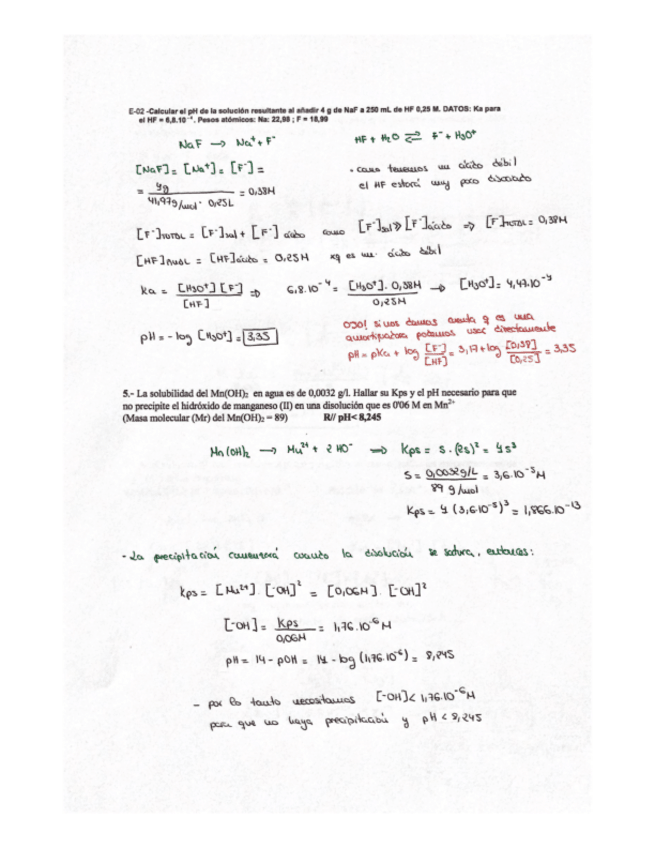 E-02 -Calcular el pH de la solución resultante al añadir 4 g de NaF a 250 mL de HF 0,25 M. DATOS: Ka para
el HF = 6,8.10⁻⁴. Pesos atómicos: Na: 22,98 ; F = 18,99
NaF → Na⁺ + F⁻
HF + H₂O ⇌ F⁻ + H₃O⁺
[NaF] = [Na⁺] = [F⁻] =
= 4g / 41,97g/mol · 0,25L = 0,38M
· como tenemos un ácido débil
el HF estará muy poco disociado
[F⁻]TOTAL = [F⁻]sal + [F⁻] ácido como [F⁻]sal >> [F⁻]ácido ⇒ [F⁻]TOTAL = 0,38M
[HF]FINAL = [HF]ácido = 0,25M xq es un ácido débil
Ka = [H₃O⁺] [F⁻] / [HF] ⇒ 6,8.10⁻⁴ = [H₃O⁺]. 0,38M / 0,25M → [H₃O⁺] = 4,47.10⁻⁴
pH = - log [H₃O⁺] = 3,35
OJO! si nos damos cuenta q es una
amortiguadora podemos usar directamente
pH = pKa + log [F⁻] / [HF] = 3,17 + log [0,38] / [0,25] = 3,35
5.- La solubilidad del Mn(OH)₂ en agua es de 0,0032 g/l. Hallar su Kps y el pH necesario para que
no precipite el hidróxido de manganeso (II) en una disolución que es 0'06 M en Mn²⁺
(Masa molecular (Mr) del Mn(OH)₂ = 89) R// pH< 8,245
Mn(OH)₂ → Mn²⁺ + 2 HO⁻ ⇒ Kps = s . (2s)² = 4s³
S = 0,0032g/L / 89 g/mol = 3,6.10⁻⁵M
Kps = 4 (3,6.10⁻⁵)³ = 1,866.10⁻¹³
- La precipitación comenzará cuando la disolución se satura, entonces:
Kps = [Mn²⁺] [⁻OH]² = [0,06M] . [⁻OH]²
[⁻OH] = Kps / 0,06M = 1,76.10⁻⁶M
pH = 14 - pOH = 14 - log (1,76.10⁻⁶) = 8,245
- por lo tanto necesitamos [⁻OH] < 1,76.10⁻⁶M
para que no haya precipitación y pH < 8,245